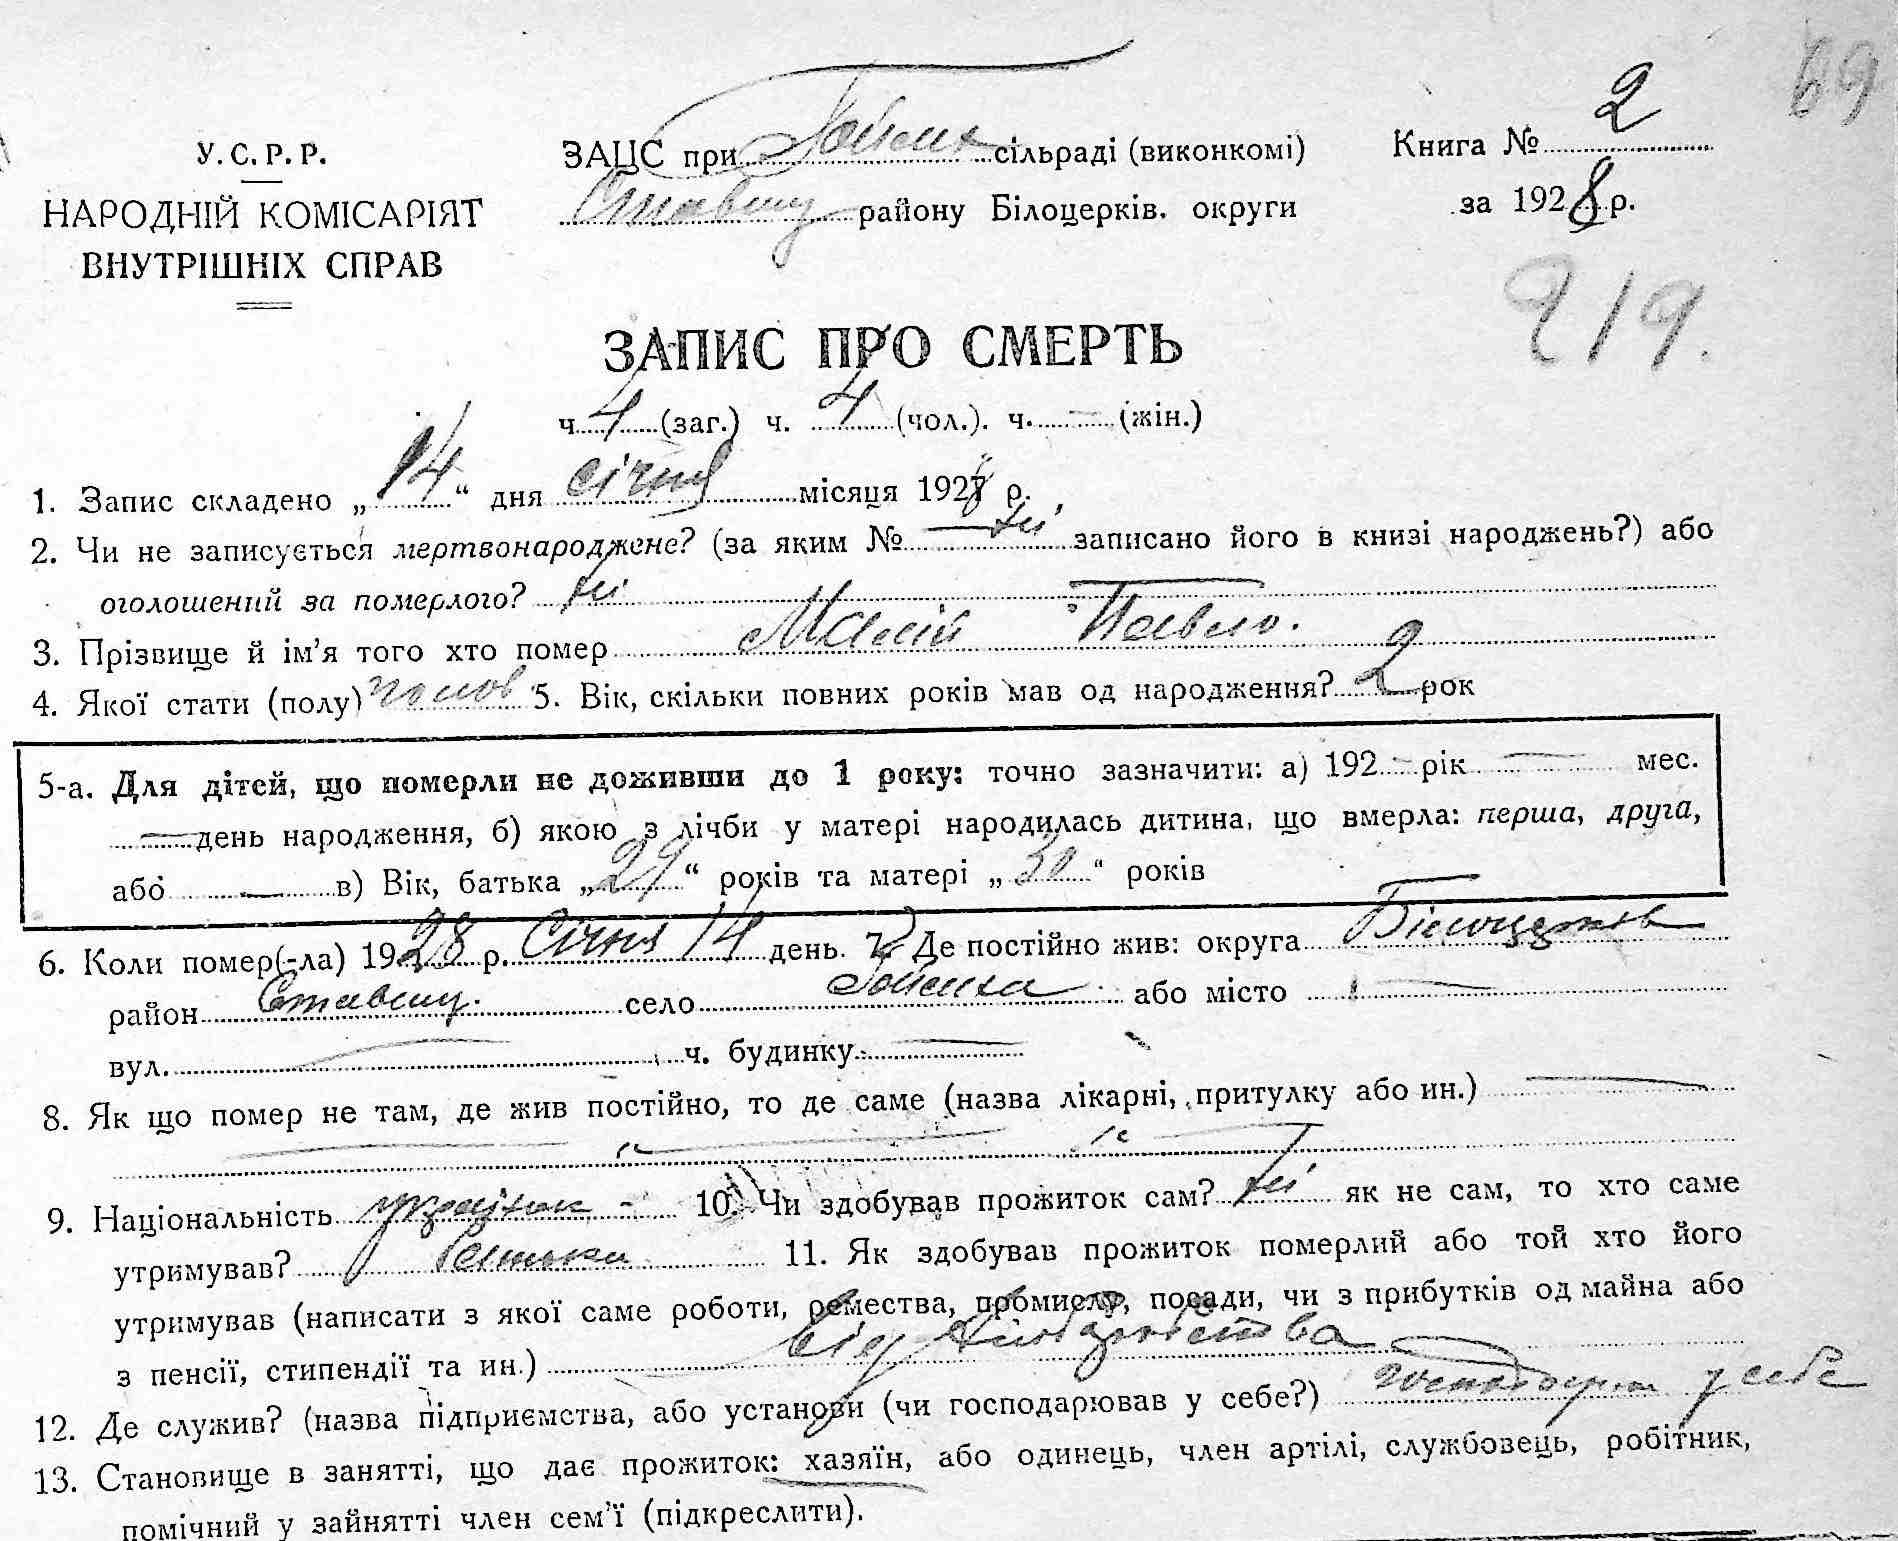 69
У.С.Р.Р.
НАРОДНІЙ КОМІСАРІЯТ
ВНУТРІШНІХ СПРАВ
ЗАЦС при Гойсих сільраді (виконкомі)
Ставищ району Білоцерків. округи
Книга № 2
за 1928 р.
219.
ЗАПИС ПРО СМЕРТЬ
ч. 4 (заг.) ч. 4 (чол.). ч. — (жін.)
1. Запис складено „ 14 “ дня січня місяця 1928 р.
2. Чи не записується мертвонароджене? (за яким № — ні записано його в книзі народжень?) або
оголошений за померлого? ні
3. Прізвище й ім’я того хто помер Павло.
4. Якої стати (полу) чолов 5. Вік, скільки повних років мав од народження? 2 рок
5-а. Для дітей, що померли не доживши до 1 року: точно зазначити: а) 192 — рік — мес.
— день народження, б) якою з лічби у матері народилась дитина, що вмерла: перша, друга,
або — в) Вік, батька „ 29 “ років та матері „ 30 “ років
6. Коли помер(-ла) 1928 р. Січня 14 день. 7. Де постійно жив: округа Білоцерків
район Ставищ. село Гойсиха або місто —
вул. — ч. будинку —
8. Як що помер не там, де жив постійно, то де саме (назва лікарні, притулку або ин.) —
— „ — „ —
9. Національність україн. - 10. Чи здобував прожиток сам? ні як не сам, то хто саме
утримував? Батьки 11. Як здобував прожиток померлий або той хто його
утримував (написати з якої саме роботи, ремества, промислу, посади, чи з прибутків од майна або
з пенсії, стипендії та ин.) від хліборобства
12. Де служив? (назва підприємства, або установи (чи господарював у себе?) господарює у себе
13. Становище в занятті, що дає прожиток: хазяїн, або одинець, член артілі, службовець, робітник,
помічний у зайнятті член сем’ї (підкреслити).